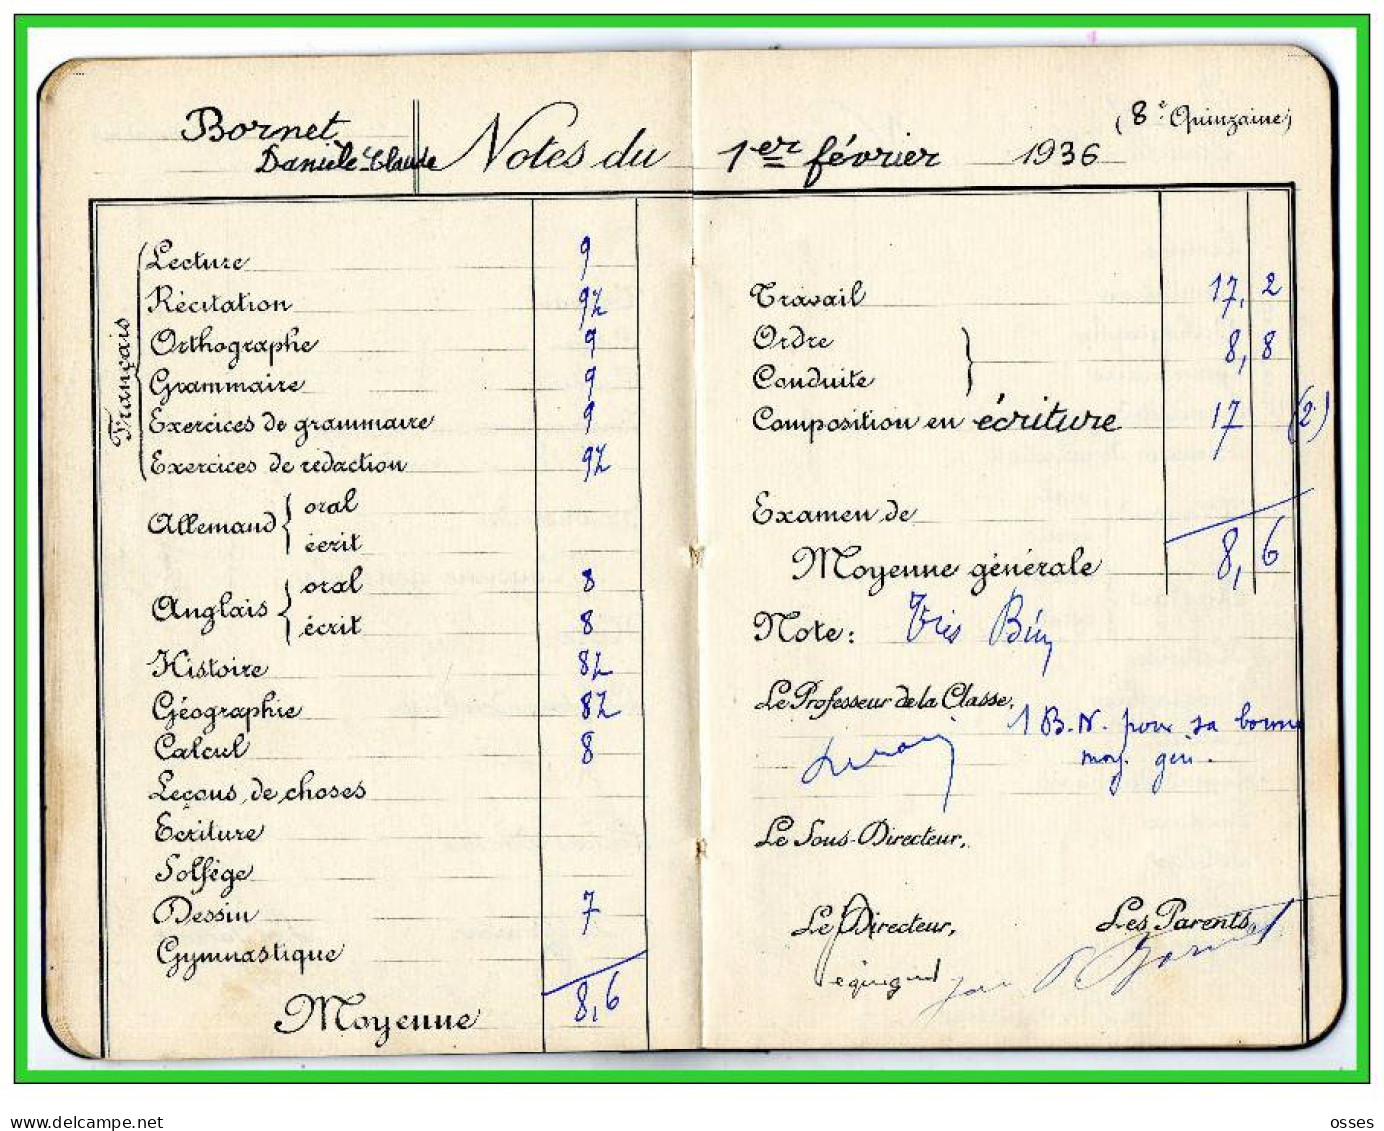 Bornet
Danièle-Claude
Notes du 1er février 1936
(8e Quinzaine)
Français
Lecture 9
Récitation 9½
Orthographe 9
Grammaire 9
Exercices de grammaire 9
Exercices de rédaction 9½
Allemand { oral
écrit
Anglais { oral 8
écrit 8
Histoire 8½
Géographie 8½
Calcul 8
Leçons de choses
Ecriture
Solfège
Dessin 7
Gymnastique
Moyenne 8,6
Travail 17,2
Ordre
Conduite } 8,8
Composition en écriture 17 (2)
Examen de
Moyenne générale 8,6
Note: Très Bien
Le Professeur de la Classe,
1 B.N. pour sa bonne
moy. gén.
Le Sous-Directeur,
Le Directeur,
Les Parents,
Bornet
delcampe.net
osses